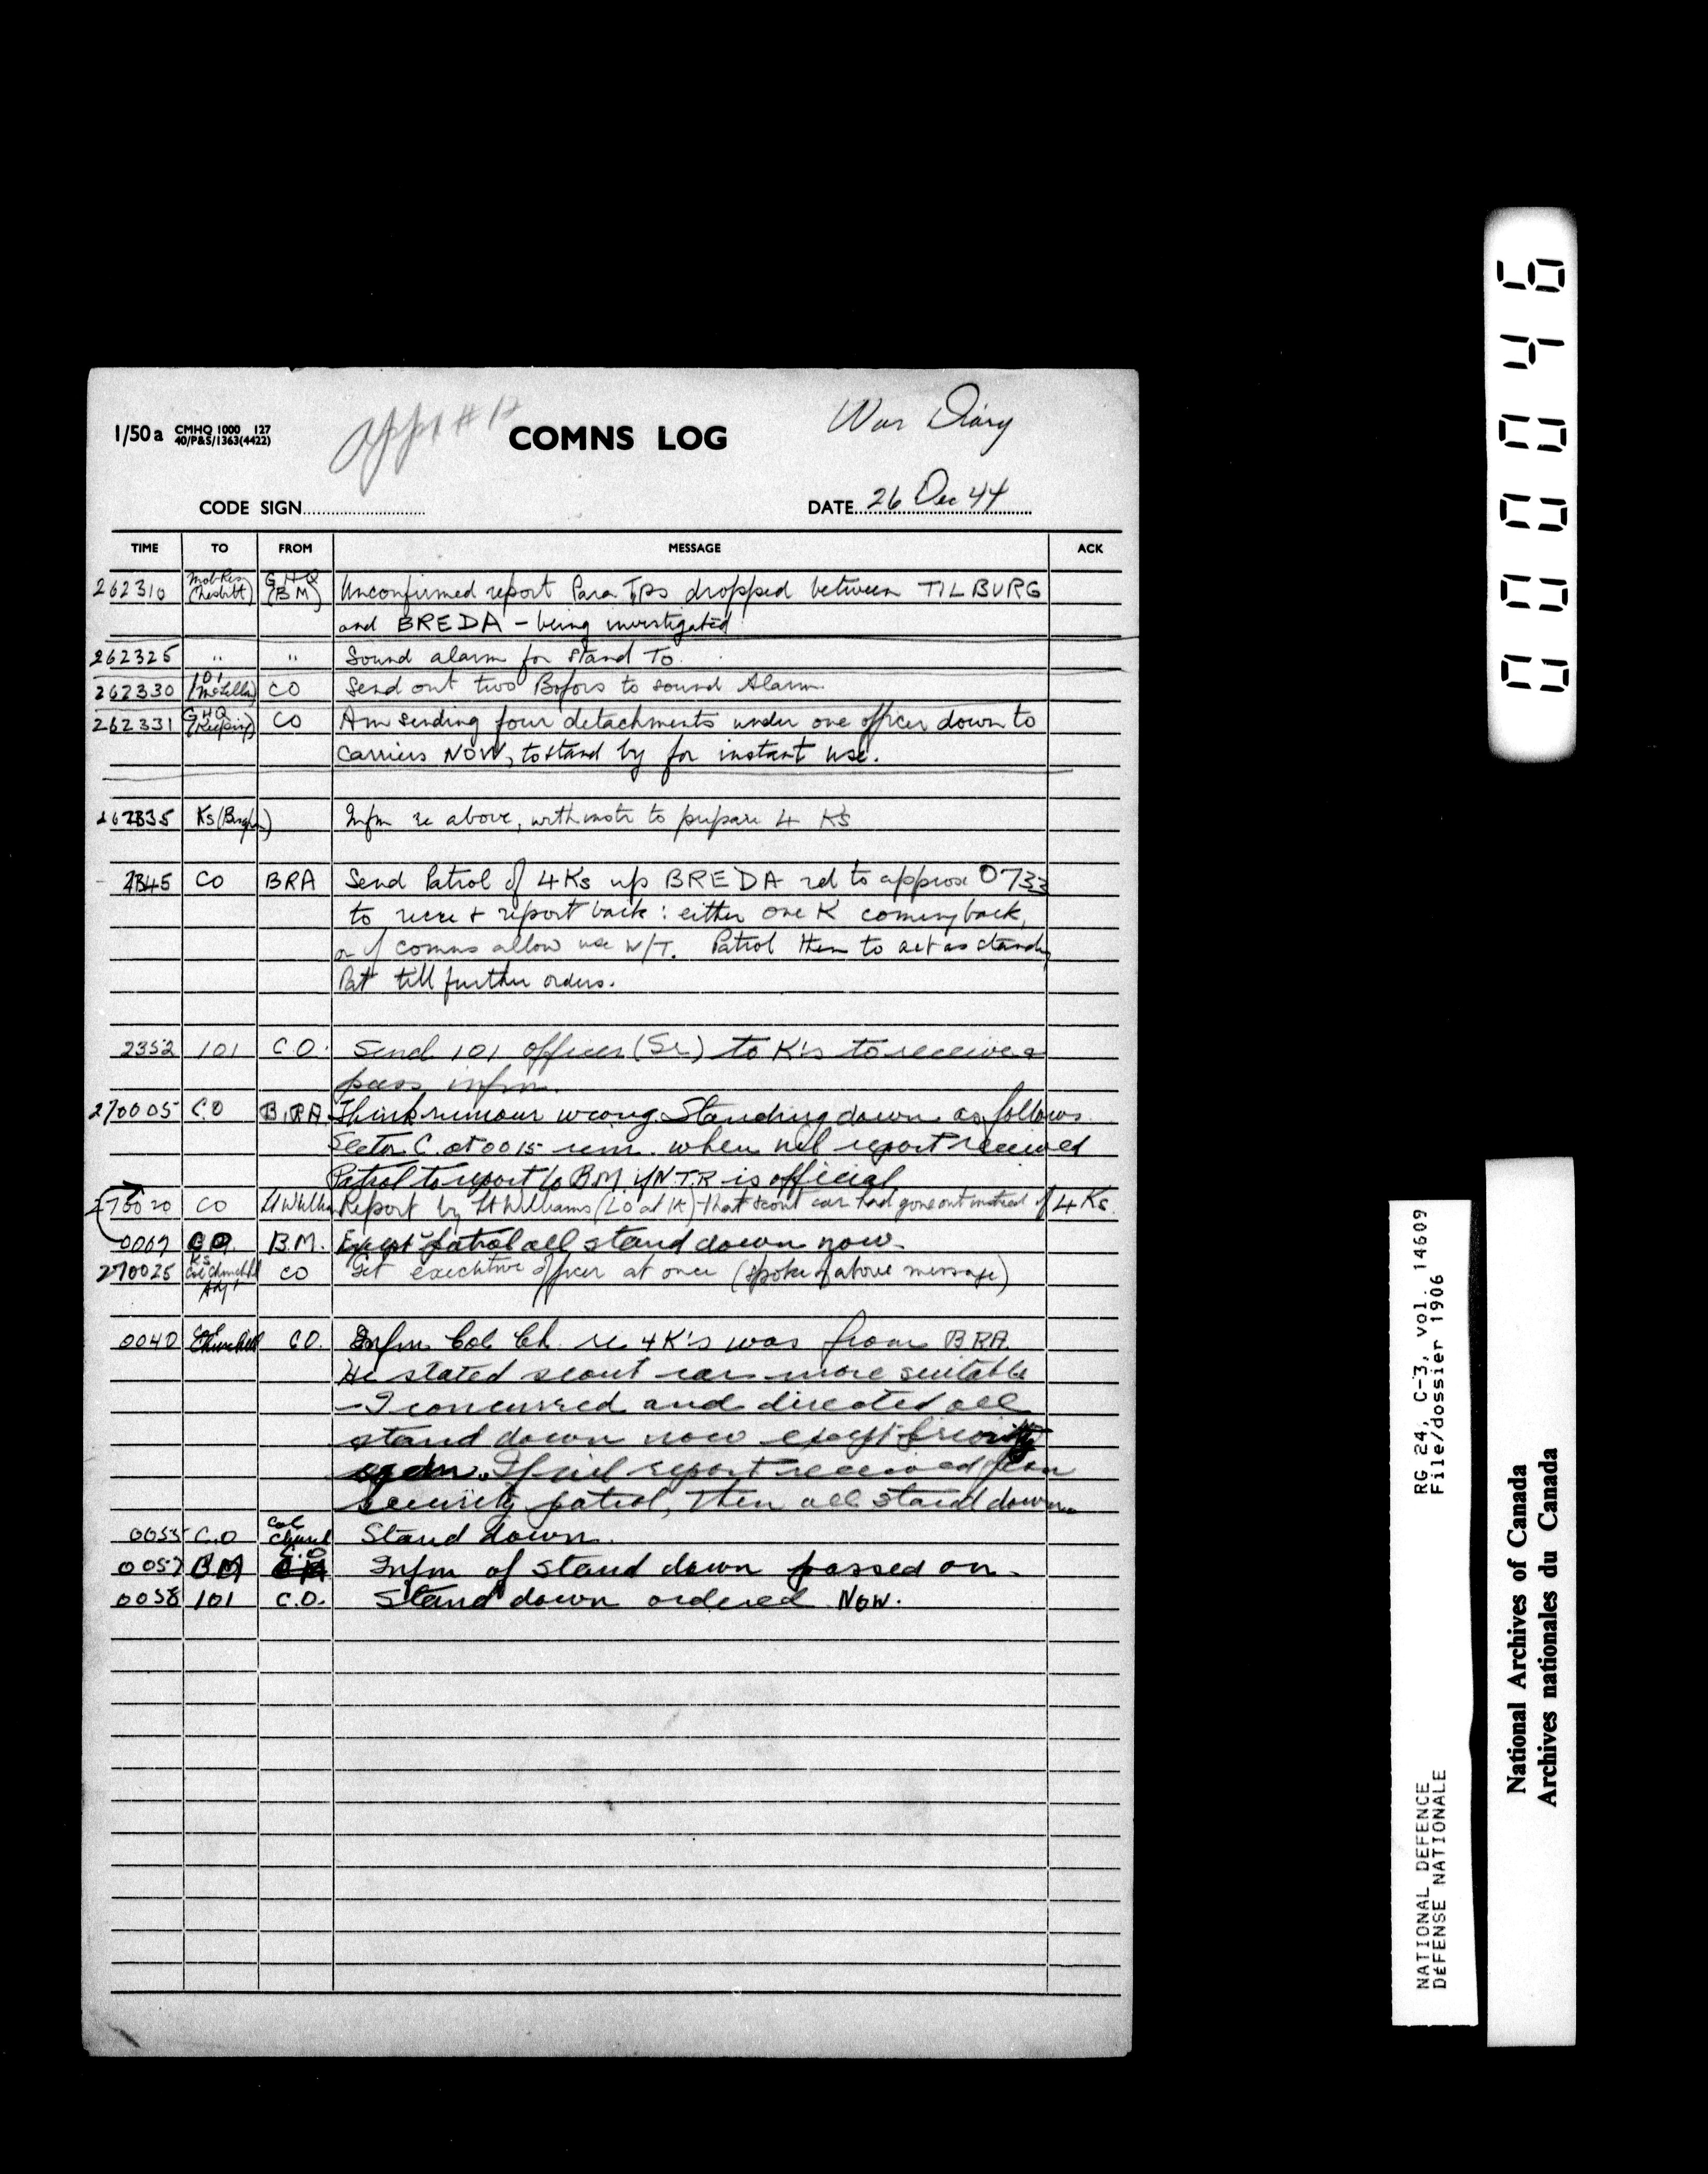 1/50a CMHQ 1000 127
40/P&S/1363(4422)
COMNS LOG
War Diary
CODE SIGN
DATE 26 Dec 44
TIME TO FROM MESSAGE ACK
262310 (Nesbitt) GHQ (BM) Unconfirmed report Para Tps dropped between TILBURG
and BREDA - being investigated
262325 " " Sound alarm for Stand To.
262330 101 CO Send out two Bofors to sound Alarm.
262331 GHQ CO Am sending four detachments under one officer down to
carriers NOW, to stand by for instant use.
262335 Ks Infm re above, with instr to prepare 4 Ks
2345 CO BRA Send Patrol of 4 Ks up BREDA rd to approx 0733
to recce & report back: either one K coming back,
or if comns allow use W/T. Patrol then to act as standing
Pat till further orders.
2352 101 C.O. Send 101 officer (Sr) to K's to receive &
pass infm.
270005 C.O B.R.A. Think rumour wrong. Standing down as follows
Sector C. at 0015 rem. when nil report received
Patrol to report to B.M. if N.T.R is official
270020 CO Lt Williams Report by Lt Williams (LO at K) - that scout car had gone out instead of 4 Ks.
0007 CO B.M. Except patrol all stand down now.
270025 Ks Col Churchill Adjt CO Get executive officer at once (spoke of above message)
0040 Col Churchill CO. Infm Col Ch. re 4 K's was from BRA
He stated scout car more suitable
- I concurred and directed all
stand down now except priority
If nil report received from
security patrol, then all stand down.
0055 C.O Col Church Stand down.
0057 BM C.O Infm of stand down passed on.
0058 101 C.O. Stand down ordered NOW.
000046
RG 24, C-3, vol. 14609
File/dossier 1906
NATIONAL DEFENCE
DÉFENSE NATIONALE
National Archives of Canada
Archives nationales du Canada